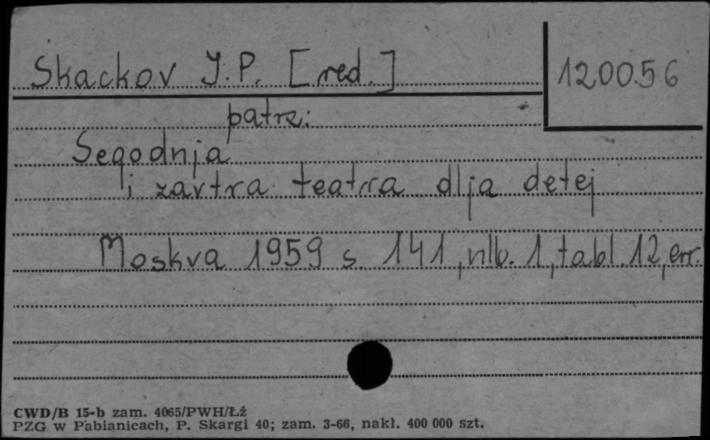 Skackov J. P. [red.]
120056
patrz:
Segodnja
i zavtra teatra dlja detej
Moskva 1959 s. 141, nlb. 1, tabl. 12, err.
CWD/B 15-b zam. 4065/PWH/Łź
PZG w Pabianicach, P. Skargi 40; zam. 3-66, nakł. 400 000 szt.